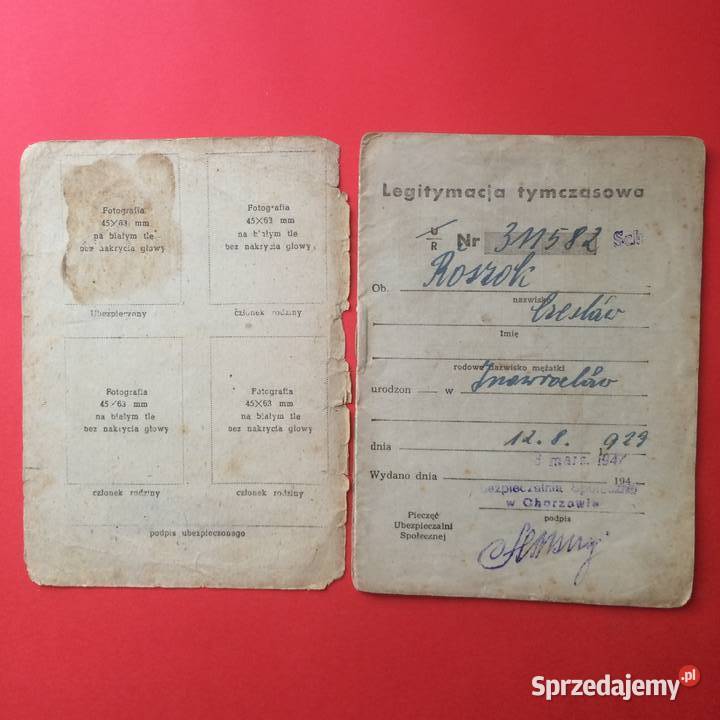 Fotografia
45×63 mm
na białym tle
bez nakrycia głowy
Ubezpieczony
Fotografia
45×63 mm
na białym tle
bez nakrycia głowy
członek rodziny
Fotografia
45×63 mm
na białym tle
bez nakrycia głowy
członek rodziny
Fotografia
45×63 mm
na białym tle
bez nakrycia głowy
członek rodziny
podpis ubezpieczonego
Legitymacja tymczasowa
U/R Nr 311582 Sch
Ob. Roszok
nazwisko
Czesław
imię
rodowe nazwisko mężatki
urodzon w Inowrocław
dnia 12.8. 929
marz. 1947
Wydano dnia 194
Ubezpieczalnia Społeczna
w Chorzowie
Pieczęć
Ubezpieczalni
Społecznej
podpis
Sprzedajemy.pl